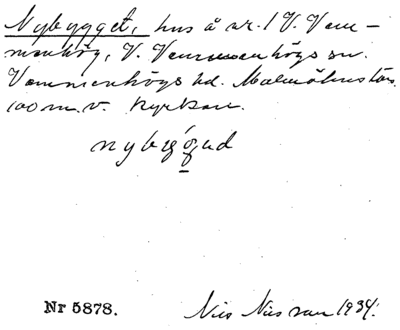 Nybygget, hus å nr. 1 V. Vem-
menhög, V. Vemmenhögs sn.
Vemmenhögs hd. Malmöhus län.
100 m. v. kyrkan.
nybygúd
Nr 5878.
Nils Nilsson 1934.